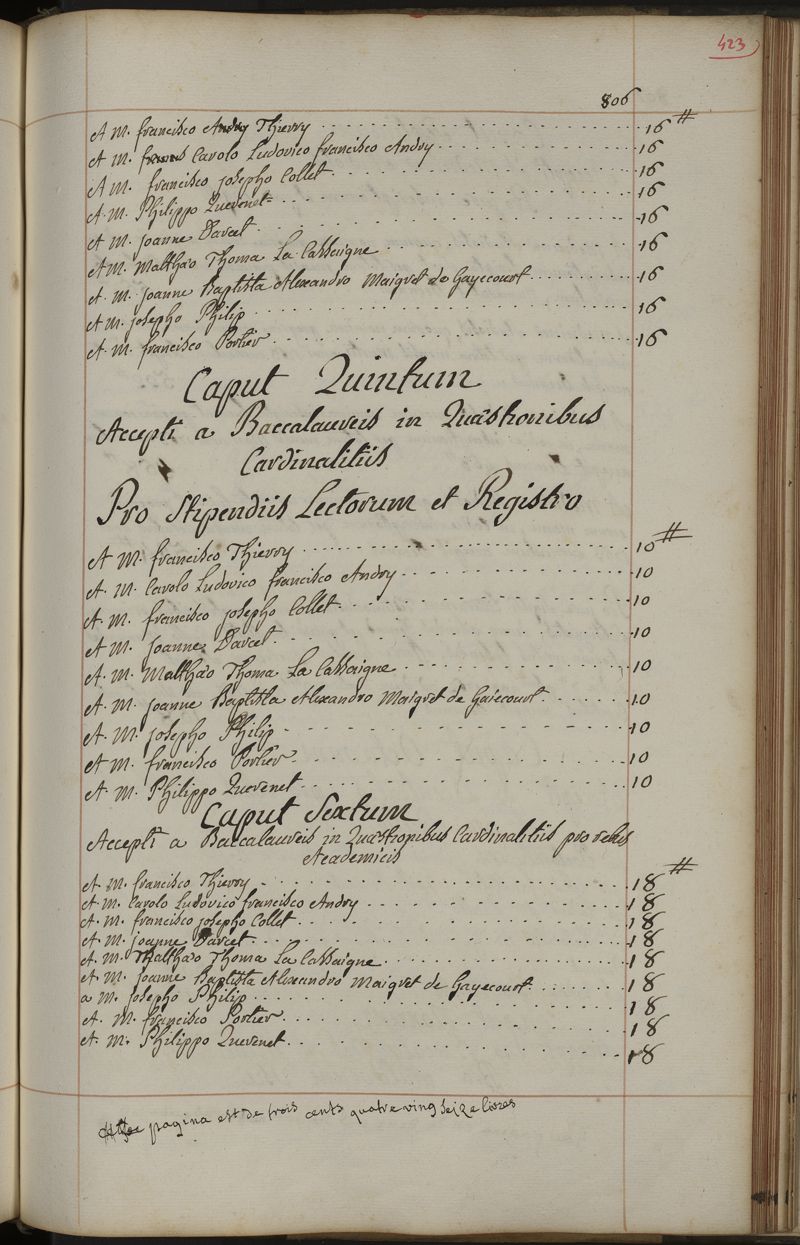 423
806
A M. francisco Andry Thierry 16 ⁗
A M. Carolo Ludovico francisco Andry 16
A M. francisco josepho Collet 16
A. M. Philippo Quevenet 16
A M. joanne Darcet 16
A M. Matthæo Thoma La Cassaigne 16
A. M. joanne Baptista Alexandro Maigret de Gayecourt 16
A M. josepho Philip 16
A. M. francisco Portier 16
Caput Quintum
Accepti a Baccalaureis in Quæstionibus
Cardinalitiis
Pro Stipendiis Lectorum et Registro
A M. francisco Thierry 10 #
A. M. Carolo Ludovico francisco Andry 10
A. M. francisco josepho Collet 10
A M. joanne Darcet 10
A. M. Matthæo Thoma La Cassaigne 10
A. M. joanne Baptista Alexandro Maigret de Gaiecourt 10
A. M. josepho Philip 10
A M. francisco Portier 10
A. M. Philippo Quevenet 10
Caput Sextum
Accepti a Baccalaureis in Quæstionibus Cardinalitiis pro rebus
Academicis
A. M. francisco Thierry 18 #
A. M. Carolo Ludovico francisco Andry 18
A. M. francisco josepho Collet 18
A. M. joanne Darcet 18
A. M. Matthæo Thoma La Cassaigne 18
A. M. joanne Baptista Alexandro Maigret de Gayecourt 18
a M. josepho Philip 18
A. M. francisco Portier 18
A. M. Philippo Quevenet 18
pagina est de trois cents quatre ving seize livres